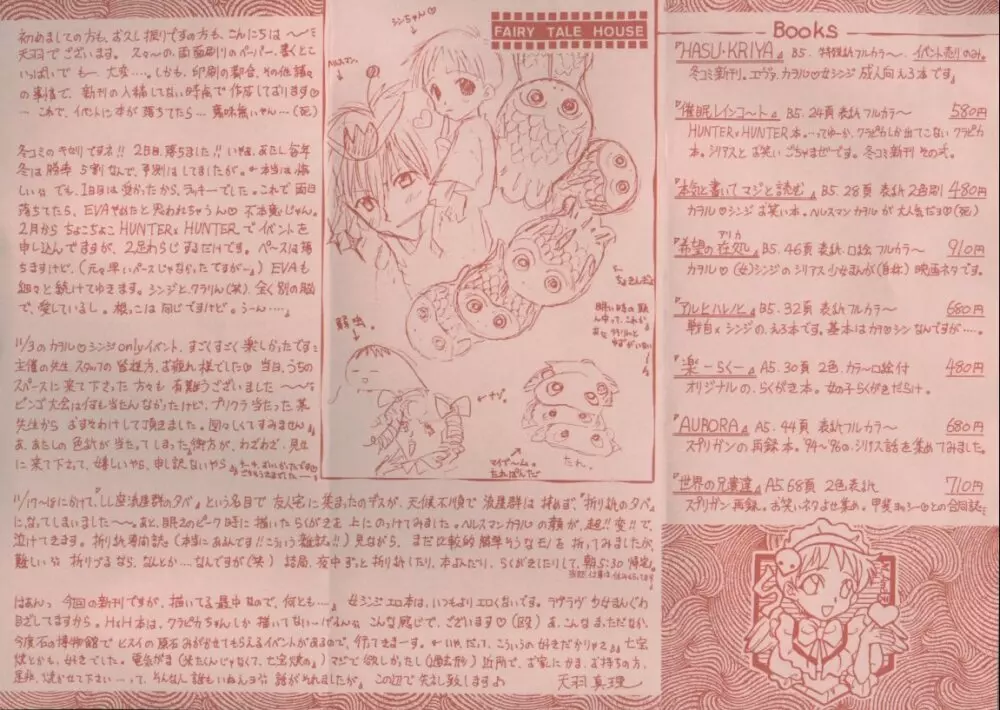 初めましての方も、お久し振りですの方も、こんにちは〜〜
天羽でございます。スタ〜の、両面刷りのペーパー、書くとこ
いっぱいで も一 大変…。しかも、印刷の都合、その他諸々
の事情で、新刊の入稿してない時点で作成しております♡
… これで、イベントに本が落ちてたら… 意味無いやん…(死)
2日目、落ちました!!
冬は勝率 5割なんで、予測はしてましたが。
でも、1日目は受かったから、ラッキーでした。これで 両日
落ちてたら、EVAやめたと思われちゃうん♡
2月から ちょこちょこ HUNTER×HUNTER でイベントを
申し込んでますが、2足わらじするだけです。ペースは落
ちますけど、(元々早いペースじゃなかったですが〜)EVAも
細々と続けてゆきます。シンジとクラりん(笑)全く別の脳
で、愛しているし。根っこは同じですけど。うーん…。
11/3のカヲル♡シンジonlyイベント、すごくすごく楽しかったです
主催の先生 スタッフの皆様方、お疲れ様でした♡ 当日、うちの
スペースに来て下さった方々も 有難うございました〜〜
ビンゴ大会は何も当たんなかったけど、プリクラ当たった某
先生から おすそわけして頂きました。図々しくてすみません
あたしの色紙が当たってしまった
に来て下さって、嬉しいやら、申し訳ないやら
シンちゃん♡
ヘルスマン
FAIRY TALE HOUSE
弱虫。
ナゾ。
マイブーム。
たれぱんだ
たれ。
11/17〜18にかけて、しし座流星群の夕べ という名目で 友人宅に集まったのですが、天候不順で 流星群は拝めず、"折り紙の夕べ"
になってしまいました〜〜。あと、眠さのピーク時に描いたらくがきを 上にのっけてみました。ヘルスマンカヲルの顔が、超!!変!!で、
泣けてきます。折り紙専門誌(本当にあるんです!!こういう雑誌!!)見ながら、まだ比較的簡単そうなモノを折ってみましたが、
難しい 折りづるなら、なんとか…なんですが(笑) 結局、夜中ずっと折り紙したり、本よんだり、らくがきしたりして、朝5:30帰宅
はあんっ 今回の新刊ですが、描いてる最中なので、何とも…。 女シンジエロ本は、いつもよりエロくないです。ラブラブ少女まんがめ
ざしてますから。H×H本は、クラピカちゃんしか 描いてない こんな感じで、ございます♡(殴) あ、こんな、まっただなか、
今度石の博物館で ヒスイの原石 みがかせてもらえるイベントがあるので、行ってきまーす。←いや、だって、こういうの好きだからさぁ 七宝
焼とかも、好きでした。電気がま(米たくんじゃなくて、七宝焼の)マジで欲しかったし(過去形) 近所で、お家にかま、お持ちの方、
是非、焼かせて下さい…って、そんな人 誰もいねんヨ 話がそれましたが、この辺で失礼致します♪ 天羽真理
Books
『HASU・KRIYA』 B5. 特殊紙フルカラ〜 イベント売りのみ。
冬コミ新刊。エヴァ、カヲル♡女シンジ 成人向えろ本です
『催眠レインコート』 B5. 24頁 表紙フルカラ〜 580円
HUNTER×HUNTER本。…ってゆーか、クラピカしか出てこないクラピカ
本。シリアスとお笑いごちゃまぜです。冬コミ新刊 その弐。
『本気と書いてマジと読む』 B5. 28頁 表紙 2色刷 480円
カヲル♡シンジ お笑い本。ヘルスマンカヲルが大人気だヨ♡(死)
『希望の在処』 アリカ B5. 46頁 表紙・口絵 フルカラ〜 910円
カヲル♡(女)シンジの シリアス少女まんが(自女) 映画ネタです。
『アルヒハレノヒ』 B5. 32頁 表紙フルカラ〜 680円
戦自×シンジの、えろ本です。基本はカヲ♡シンなんですが…。
『楽 ーらくー』 A5. 30頁 2色. カラ〜口絵付 480円
オリジナルの、らくがき本。女の子らくがきだらけ。
『AURORA』 A5. 44頁 表紙フルカラ〜 680円
スプリガンの再録本。'94〜'96の、シリアス話を集めてみました。
『世界の兄貴達』 A5. 68頁 2色表紙 710円
スプリガン再録。お笑いネタよせ集め。